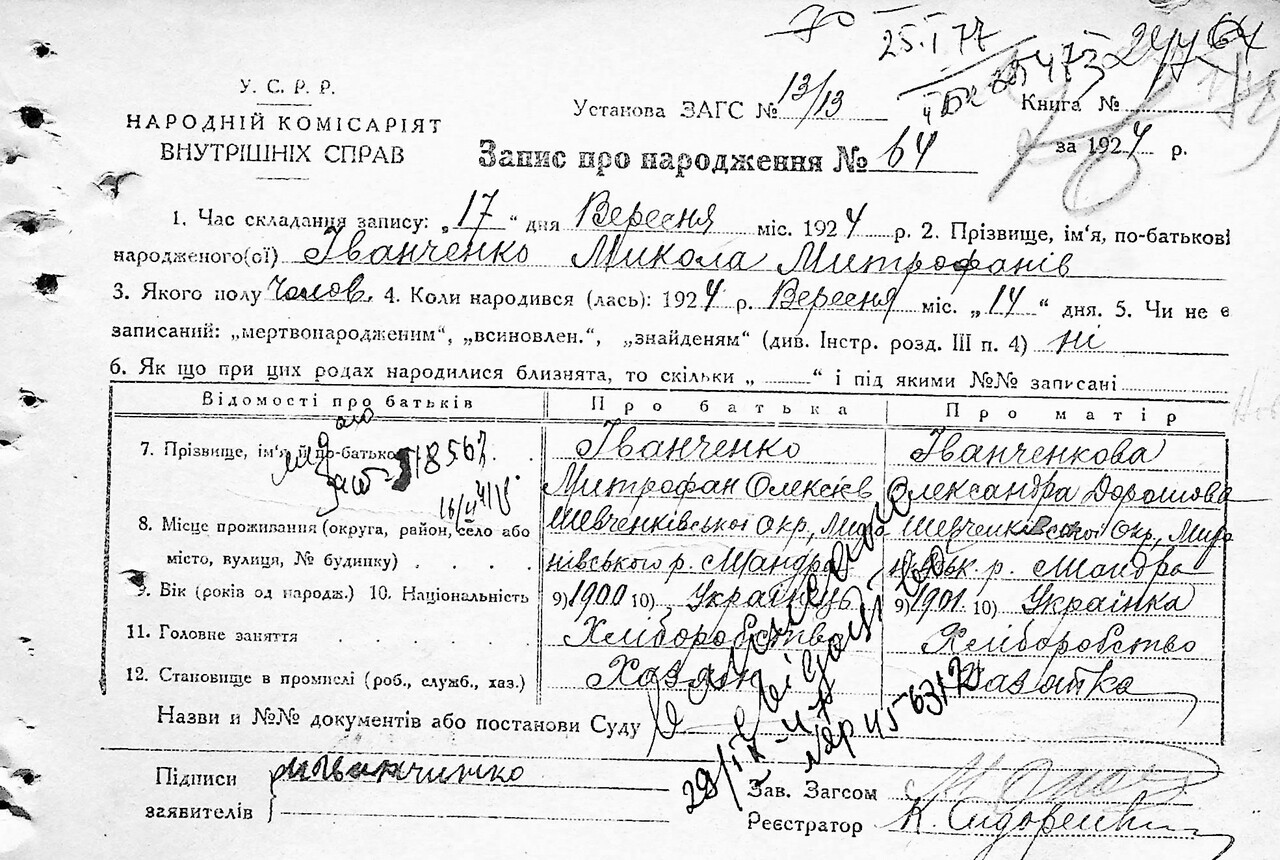 25.I 77
У. С. Р. Р.
НАРОДНІЙ КОМІСАРІЯТ
ВНУТРІШНІХ СПРАВ
Установа ЗАГС № 13/13
Книга №
Запис про народження № 64
за 1924 р.
1. Час складання запису: „17“ дня Вересня міс. 1924 р. 2. Прізвище, ім'я, по-батькові
народженого(ої) Іванченко Микола Митрофанів
3. Якого полу Чолов. 4. Коли народився (лась): 1924 р. Вересня міс. „14“ дня. 5. Чи не є
записаний: „мертвонародженим“, „всиновлен.“, „знайденям“ (див. Інстр. розд. III п. 4) ні
6. Як що при цих родах народилися близнята, то скільки „ “ і під якими №№ записані
Відомості про батьків Про батька Про матір
7. Прізвище, ім'я й по-батькові Іванченко Іванченкова
518567
Митрофан Олексієв Олександра Дорошова
8. Місце проживання (округа, район, село або Шевченківської Окр, Миро Шевченківської Окр, Миро
місто, вулиця, № будинку) нівського р. Мандра нівськ. р. Мандра
9. Вік (років од народж.) 10. Національність 9) 1900 10) Українець 9) 1901 10) Українка
11. Головне заняття Хліборобство Хліборобство
12. Становище в промислі (роб., служб., хаз.) Хазяїн Хазяйка
Назви и №№ документів або постанови Суду
Підписи
заявителів
Зав. Загсом
Реєстратор К.